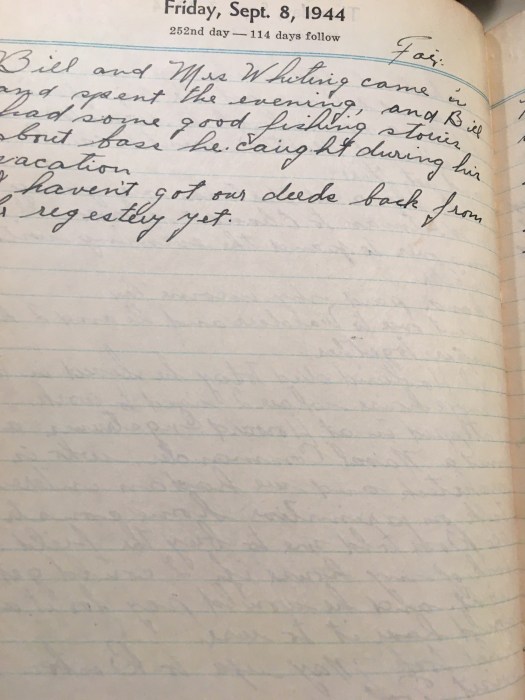 Friday, Sept. 8, 1944
252nd day — 114 days follow
Fair.
Bill and Mrs Whiting came in
and spent the evening, and Bill
had some good fishing stories
about bass he caught during his
vacation
I haven't got our deeds back from
regestery yet.